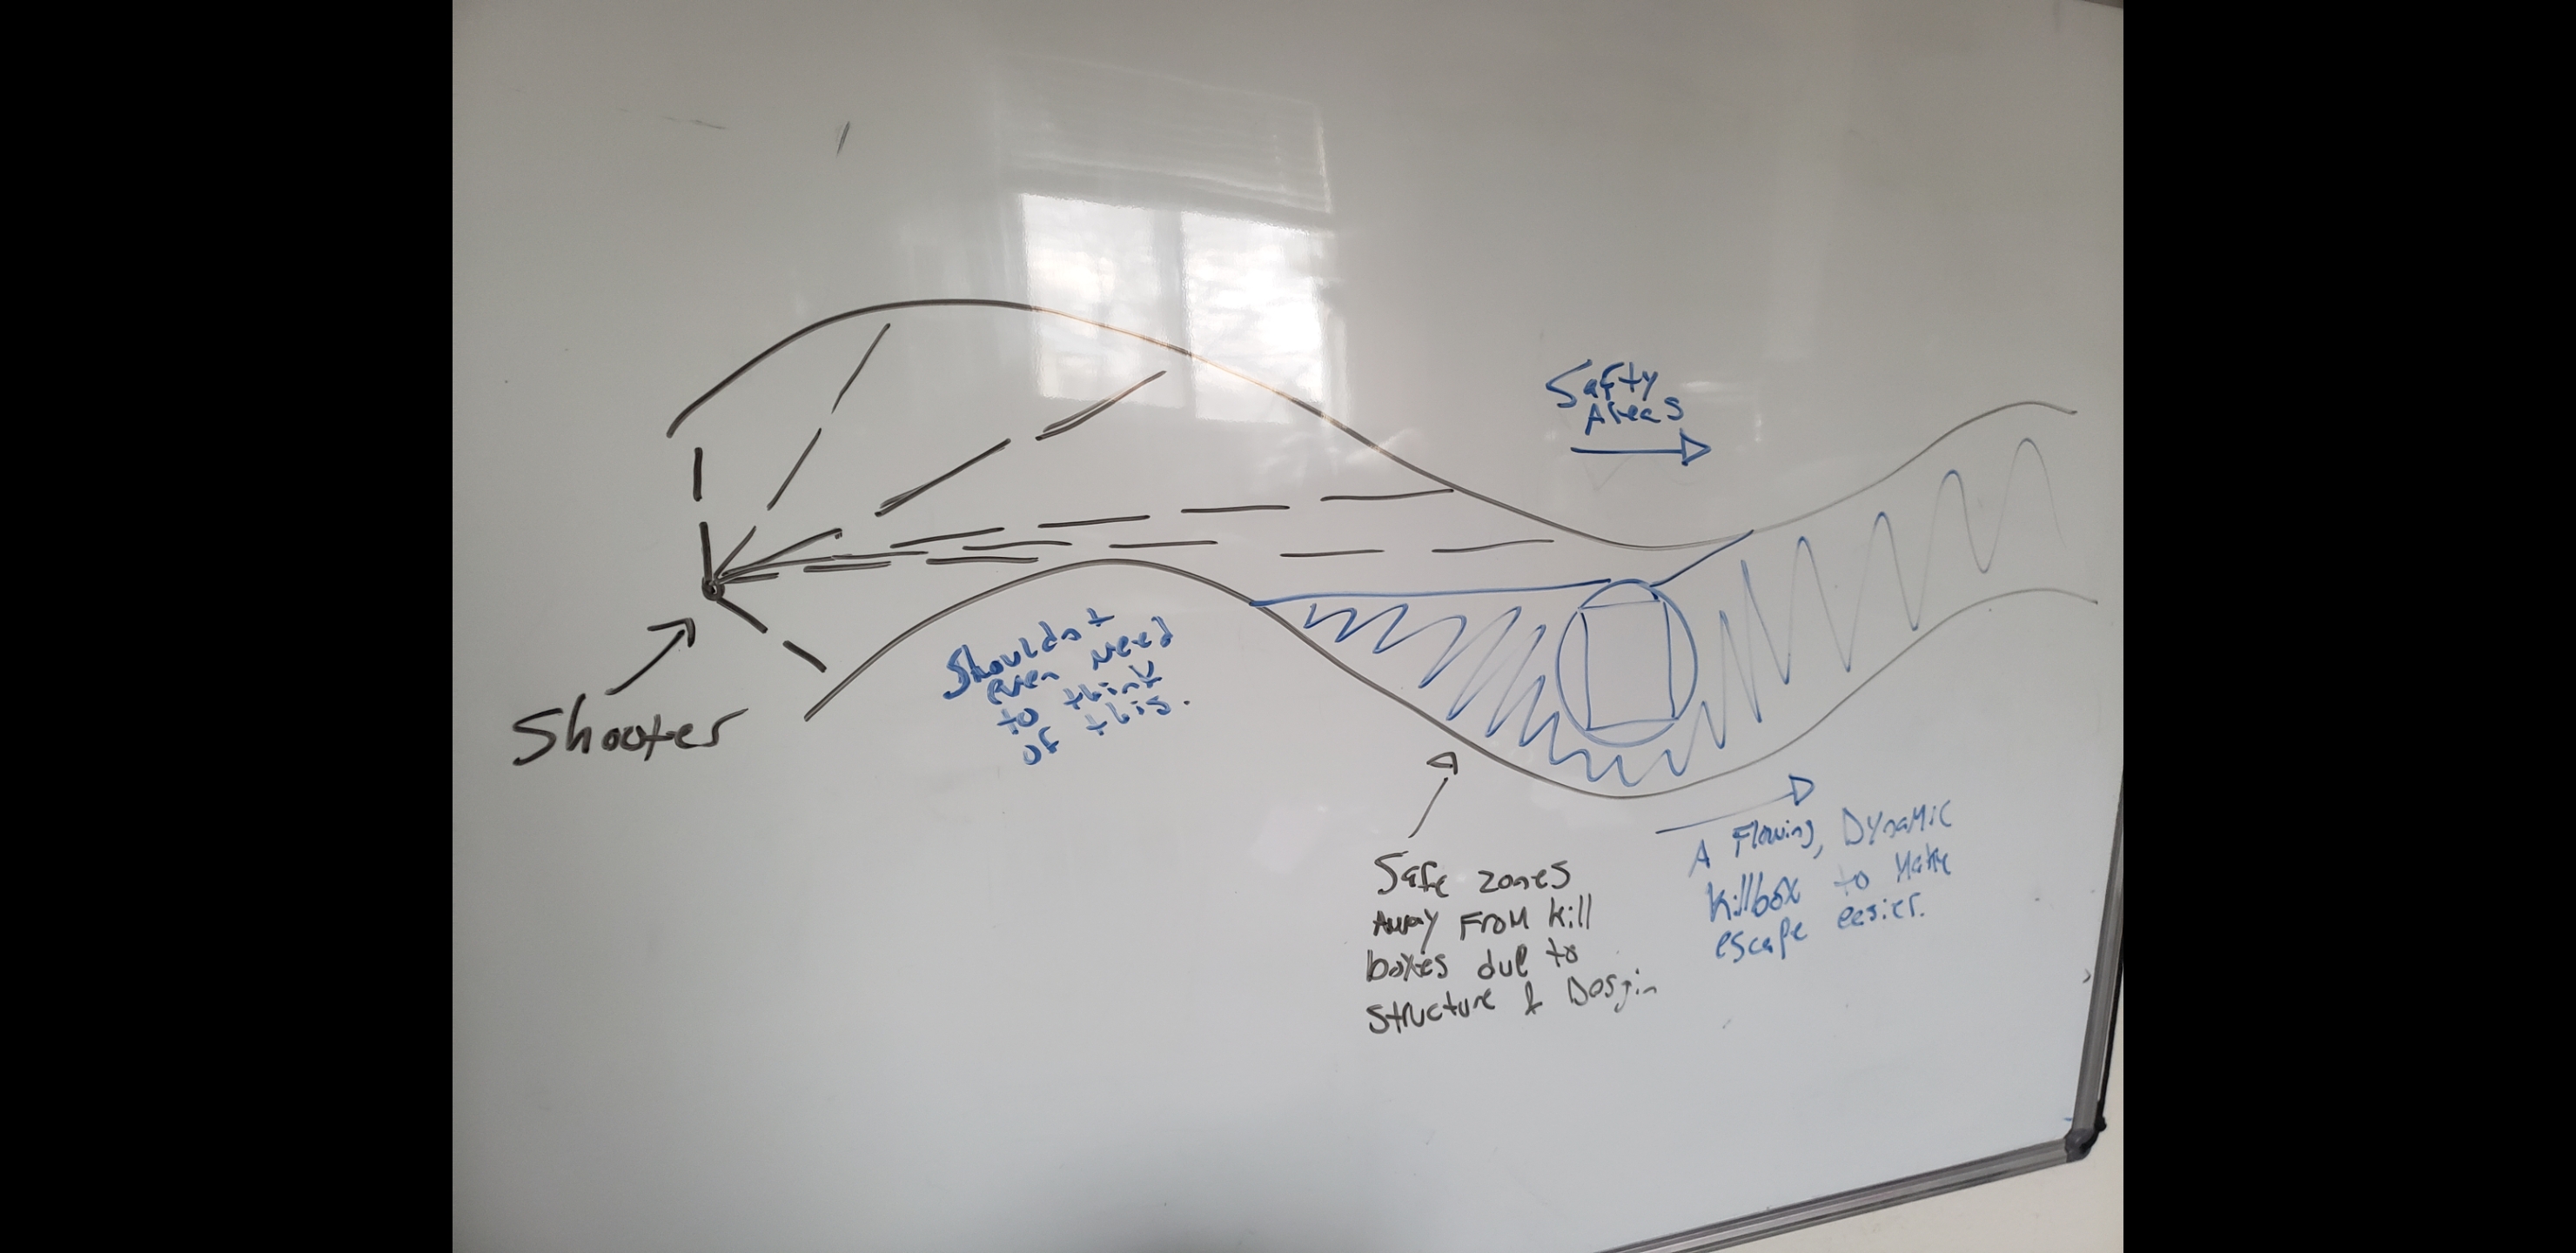 Safty
Areas
Shouldnt
even need
to think
of this.
Shooter
Safe zones
Away From kill
boxes due to
Structure & Dosgin
A Flowing, Dynamic
Killbox to Make
escape eesier.